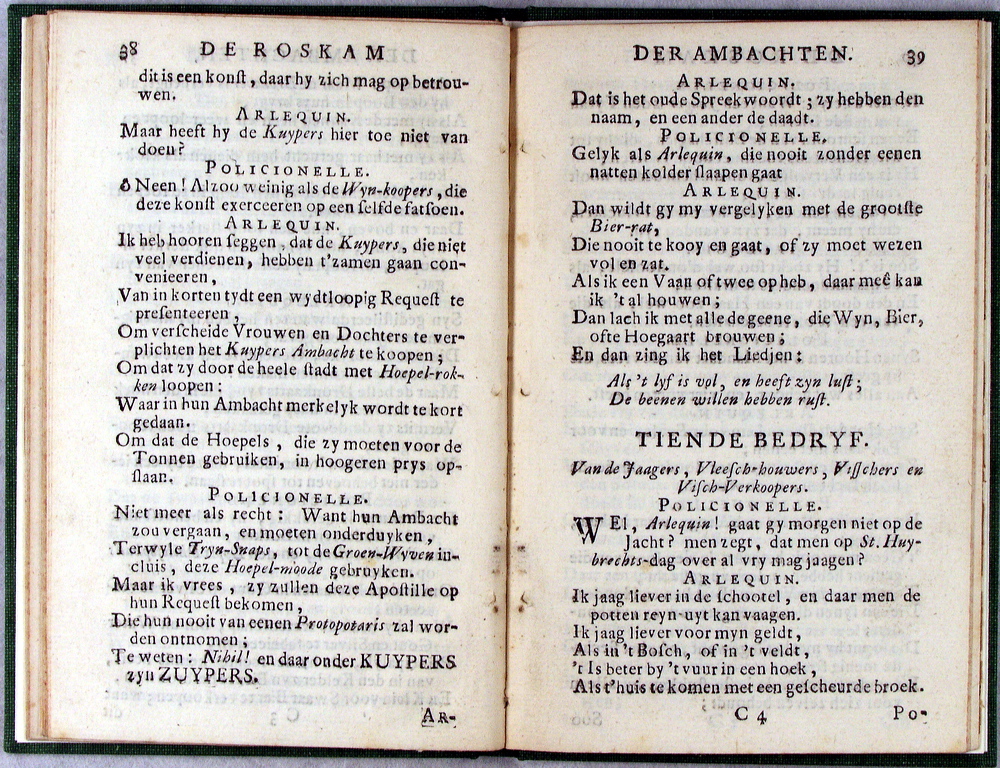 38 DE ROSKAM
dit is een konſt, daar hy zich mag op betrou-
wen.
ARLEQUIN.
Maar heeft hy de Kuypers hier toe niet van
doen?
POLICIONELLE.
ô Neen! Alzoo weinig als de Wyn-koopers, die
deze konſt exerceeren op een ſelfde fatſoen.
ARLEQUIN.
Ik heb hooren ſeggen, dat de Kuypers, die niet
veel verdienen, hebben t'zamen gaan con-
venieeren,
Van in korten tydt een wydtloopig Requeſt te
preſenteeren,
Om verſcheide Vrouwen en Dochters te ver-
plichten het Kuypers Ambacht te koopen;
Om dat zy door de heele ſtadt met Hoepel-rok-
ken loopen:
Waar in hun Ambacht merkelyk wordt te kort
gedaan.
Om dat de Hoepels, die zy moeten voor de
Tonnen gebruiken, in hoogeren prys op-
ſlaan.
POLICIONELLE.
Niet meer als recht: Want hun Ambacht
zou vergaan, en moeten onderduyken,
Terwyle Tryn-Snaps, tot de Groen-Wyven in-
cluis, deze Hoepel-moode gebruyken.
Maar ik vrees, zy zullen deze Apoſtille op
hun Requeſt bekomen,
Die hun nooit van eenen Protopotaris zal wor-
den ontnomen;
Te weten: Nihil! en daar onder KUYPERS
zyn ZUYPERS.
AR-
DER AMBACHTEN. 39
ARLEQUIN.
Dat is het oude Spreekwoordt; zy hebben den
naam, en een ander de daadt.
POLICIONELLE.
Gelyk als Arlequin, die nooit zonder eenen
natten kolder ſlaapen gaat
ARLEQUIN.
Dan wildt gy my vergelyken met de grootſte
Bier-rat,
Die nooit te kooy en gaat, of zy moet wezen
vol en zat.
Als ik een Vaan of twee op heb, daar meê kan
ik 't al houwen;
Dan lach ik met alle de geene, die Wyn, Bier,
ofte Hoegaart brouwen;
En dan zing ik het Liedjen:
Als 't lyf is vol, en heeft zyn luſt;
De beenen willen hebben ruſt.
TIENDE BEDRYF.
Van de Jaagers, Vleeſch-houwers, Viſſchers en
Viſch-Verkoopers.
POLICIONELLE.
WEl, Arlequin! gaat gy morgen niet op de
Jacht? men zegt, dat men op St. Huy-
brechts-dag over al vry mag jaagen?
ARLEQUIN.
Ik jaag liever in de ſchootel, en daar men de
potten reyn-uyt kan vaagen.
Ik jaag liever voor myn geldt,
Als in 't Boſch, of in 't veldt,
't Is beter by 't vuur in een hoek,
Als t'huis te komen met een geſcheurde broek.
C 4 Po-